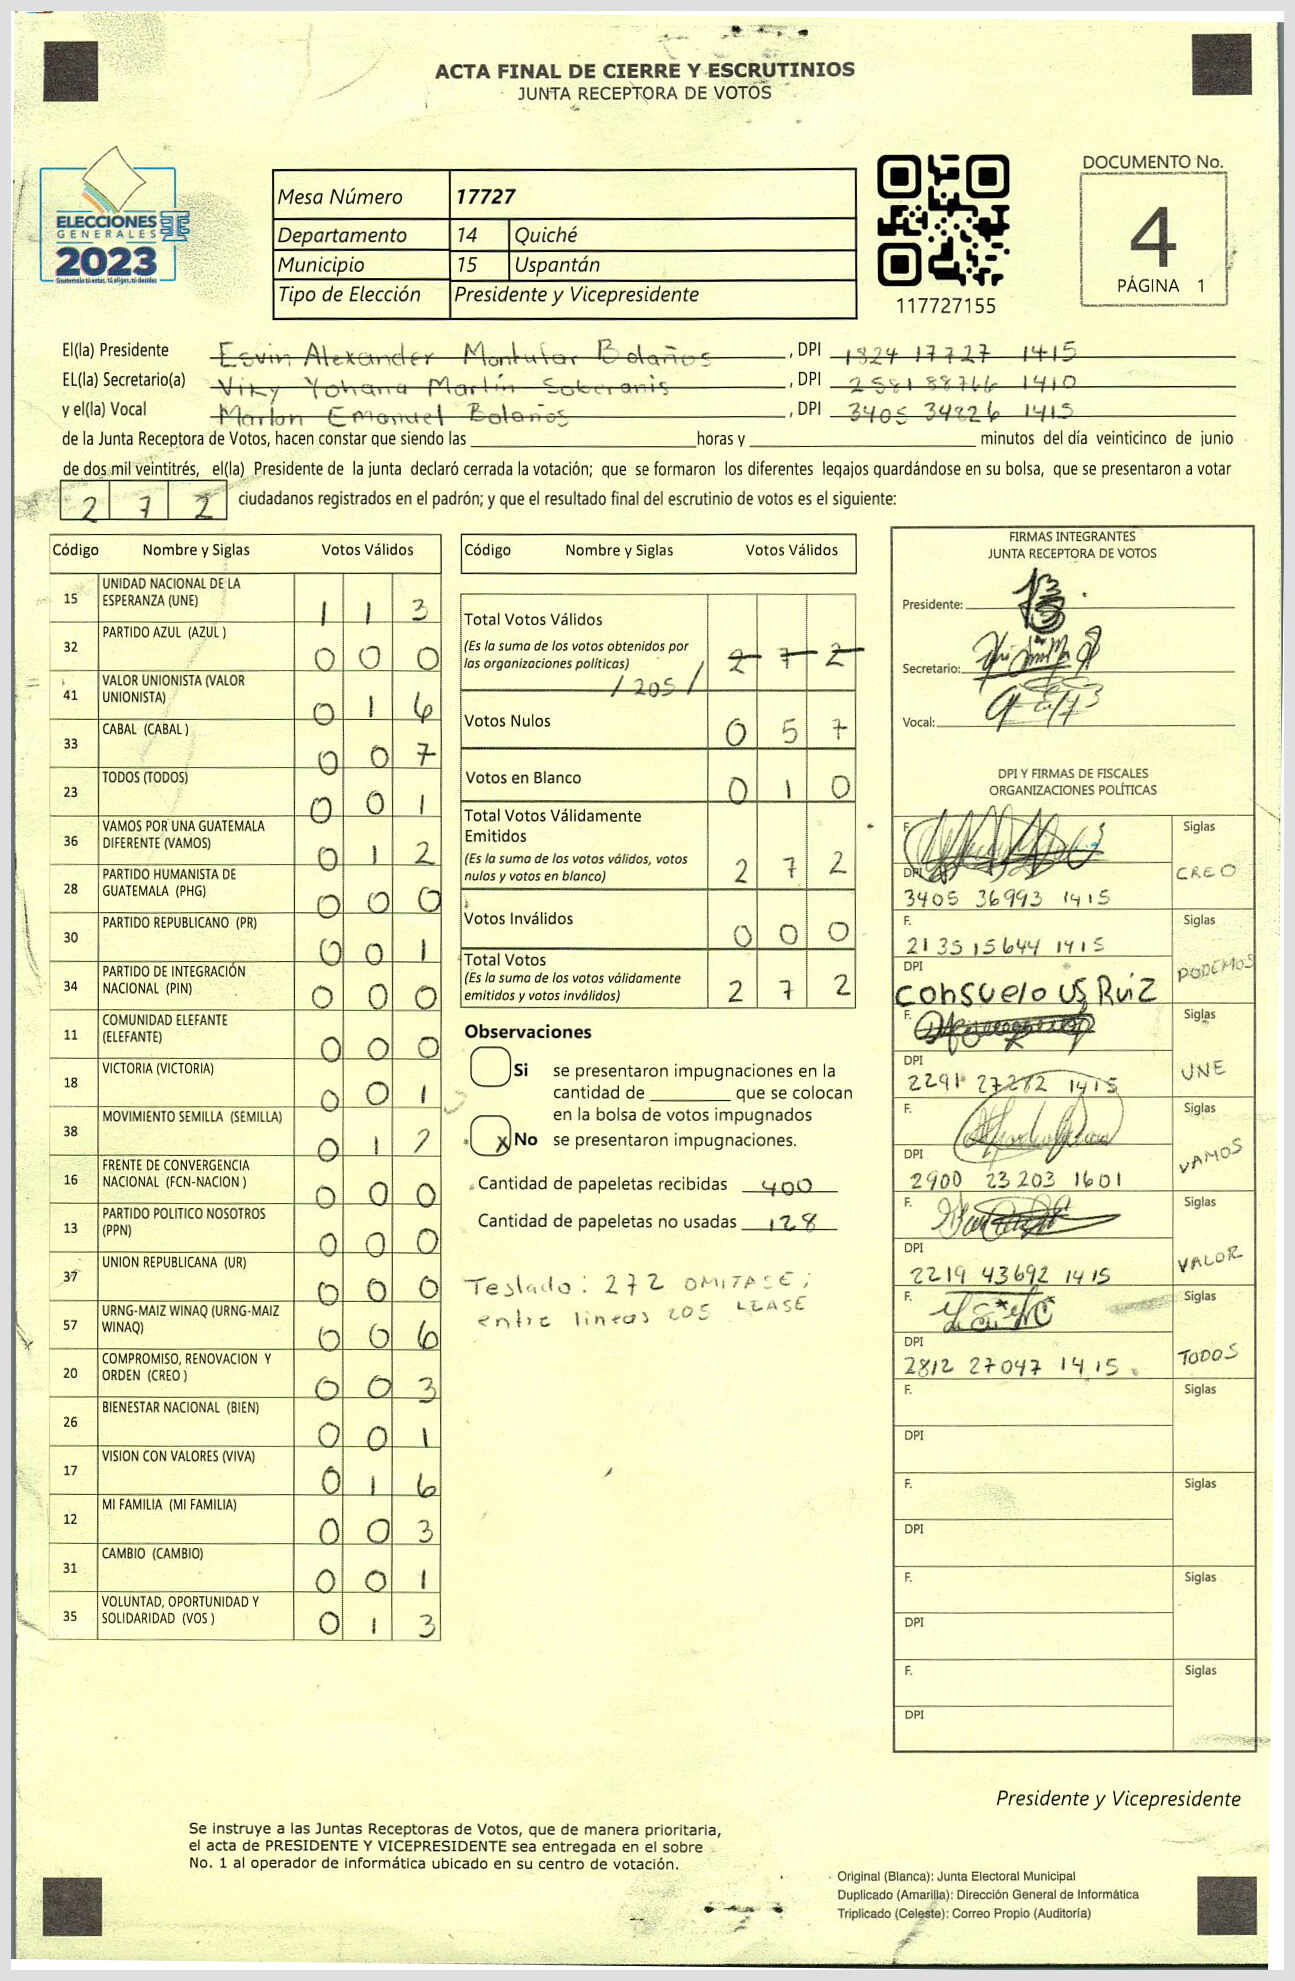 ACTA FINAL DE CIERRE Y ESCRUTINIOS
JUNTA RECEPTORA DE VOTOS
ELECCIONES
GENERALES
2023
Mesa Número 17727
Departamento 14 Quiché
Municipio 15 Uspantán
Tipo de Elección Presidente y Vicepresidente
117727155
DOCUMENTO No.
4
PÁGINA 1
El(la) Presidente Esvin Alexander Montufar Bolaños , DPI 1824 17727 1415
EL(la) Secretario(a) Viky Yohana Martín Soberanis , DPI 2581 88766 1410
y el(la) Vocal Marlon Emanuel Bolaños , DPI 3405 34826 1415
de la Junta Receptora de Votos, hacen constar que siendo las horas y minutos del día veinticinco de junio
de dos mil veintitrés, el(la) Presidente de la junta declaró cerrada la votación; que se formaron los diferentes legajos guardándose en su bolsa, que se presentaron a votar
2 7 2 ciudadanos registrados en el padrón; y que el resultado final del escrutinio de votos es el siguiente:
Código Nombre y Siglas Votos Válidos
15 UNIDAD NACIONAL DE LA ESPERANZA (UNE) 1 1 3
32 PARTIDO AZUL (AZUL ) 0 0 0
41 VALOR UNIONISTA (VALOR UNIONISTA) 0 1 6
33 CABAL (CABAL ) 0 0 7
23 TODOS (TODOS) 0 0 1
36 VAMOS POR UNA GUATEMALA DIFERENTE (VAMOS) 0 1 2
28 PARTIDO HUMANISTA DE GUATEMALA (PHG) 0 0 0
30 PARTIDO REPUBLICANO (PR) 0 0 1
34 PARTIDO DE INTEGRACIÓN NACIONAL (PIN) 0 0 0
11 COMUNIDAD ELEFANTE (ELEFANTE) 0 0 0
18 VICTORIA (VICTORIA) 0 0 1
38 MOVIMIENTO SEMILLA (SEMILLA) 0 1 2
16 FRENTE DE CONVERGENCIA NACIONAL (FCN-NACION ) 0 0 0
13 PARTIDO POLITICO NOSOTROS (PPN) 0 0 0
37 UNION REPUBLICANA (UR) 0 0 0
57 URNG-MAIZ WINAQ (URNG-MAIZ WINAQ) 0 0 6
20 COMPROMISO, RENOVACION Y ORDEN (CREO ) 0 0 3
26 BIENESTAR NACIONAL (BIEN) 0 0 1
17 VISION CON VALORES (VIVA) 0 1 6
12 MI FAMILIA (MI FAMILIA) 0 0 3
31 CAMBIO (CAMBIO) 0 0 1
35 VOLUNTAD, OPORTUNIDAD Y SOLIDARIDAD (VOS ) 0 1 3
Código Nombre y Siglas Votos Válidos
Total Votos Válidos
(Es la suma de los votos obtenidos por
las organizaciones políticas) 2 7 2
/ 205 /
Votos Nulos 0 5 7
Votos en Blanco 0 1 0
Total Votos Válidamente
Emitidos
(Es la suma de los votos válidos, votos
nulos y votos en blanco) 2 7 2
Votos Inválidos 0 0 0
Total Votos
(Es la suma de los votos válidamente
emitidos y votos inválidos) 2 7 2
Observaciones
Si se presentaron impugnaciones en la
cantidad de que se colocan
en la bolsa de votos impugnados
x No se presentaron impugnaciones.
Cantidad de papeletas recibidas 400
Cantidad de papeletas no usadas 128
Testado: 272 OMITASE;
entre lineas 205 LEASE
FIRMAS INTEGRANTES
JUNTA RECEPTORA DE VOTOS
Presidente:
Secretario:
Vocal:
DPI Y FIRMAS DE FISCALES
ORGANIZACIONES POLÍTICAS
F. Siglas
CREO
DPI
3405 36993 1415
F. Siglas
2135 15644 1415
DPI PODEMOS
Consuelo US Ruiz
F. Siglas
UNE
DPI
2291 27282 1415
F. Siglas
VAMOS
DPI
2900 23203 1601
F. Siglas
VALOR
DPI
2219 43692 1415
F. Siglas
TODOS
DPI
2812 27047 1415
F. Siglas
DPI
F. Siglas
DPI
F. Siglas
DPI
F. Siglas
DPI
Presidente y Vicepresidente
Se instruye a las Juntas Receptoras de Votos, que de manera prioritaria,
el acta de PRESIDENTE Y VICEPRESIDENTE sea entregada en el sobre
No. 1 al operador de informática ubicado en su centro de votación.
Original (Blanca): Junta Electoral Municipal
Duplicado (Amarilla): Dirección General de Informática
Triplicado (Celeste): Correo Propio (Auditoría)